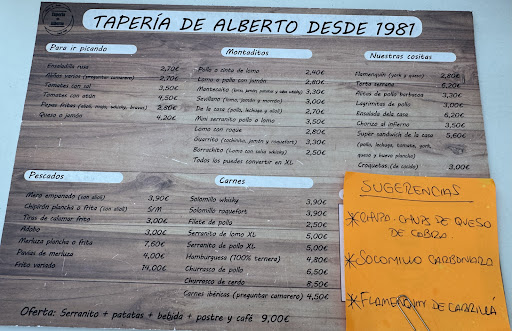 Tapería
Alberto
TAPERÍA DE ALBERTO DESDE 1981
Para ir picando
Ensaladilla rusa 2,70€
Aliños varios (preguntar camarero) 2,70€
Tomates con sal 3,50€
Tomates con atún 4,50€
Papas fritas (alioli, roquefort, whisky, bravas) 3,80€
Queso o jamón 4,20€
Montaditos
Pollo o cinta de lomo 2,40€
Lomo o pollo con jamón 2,80€
3,30€
Sevillano (lomo, jamón y morrón) 3,00€
De la casa (pollo, lechuga y alioli) 2,70€
Mini serranito pollo o lomo 3,50€
Lomo con roque 2,80€
Guarrito (cochinito, jamón y roquefort) 3,30€
Borrachito (Lomo con salsa whisky) 2,50€
Todos los puedes convertir en XL
Nuestras cositas
Flamenquín (york y queso) 2,80€
Torta serrana 6,20€
Alitas de pollo barbacoa 3,30€
Lagrimitas de pollo 3,00€
Ensalada dela casa 6,20€
Chorizo al infierno 3,50€
Super sandwich de la casa 5,60€
(pollo, lechuga, tomate, york,
queso y huevo plancha)
Croquetas (de cocido) 3,00€
Pescados
Mero empanado (con alioli) 3,90€
Chipirón plancha o frito (con alioli) S/M
Tiras de calamar frito 3,00€
Adobo 3,00€
Merluza plancha o frita 7,60€
Pavías de merluza 4,00€
Frito variado 14,00€
Carnes
Solomillo whisky 3,90€
Solomillo roquefort 3,90€
Filete de pollo 2,50€
Serranito de lomo XL 5,00€
Serranito de pollo XL 5,00€
Hamburguesa (100% ternera) 4,80€
Churrasco de pollo 6,50€
Churrasco de cerdo 8,50€
Carnes ibéricas (preguntar camarero) 4,50€
Oferta: Serranito + patatas + bebida + postre y café 9,00€
SUGERENCIAS
DE QUESO
DE CABRA
*SOLOMILLO CARBONARA
*FLAMENQUÍN DE CARRILLÁ